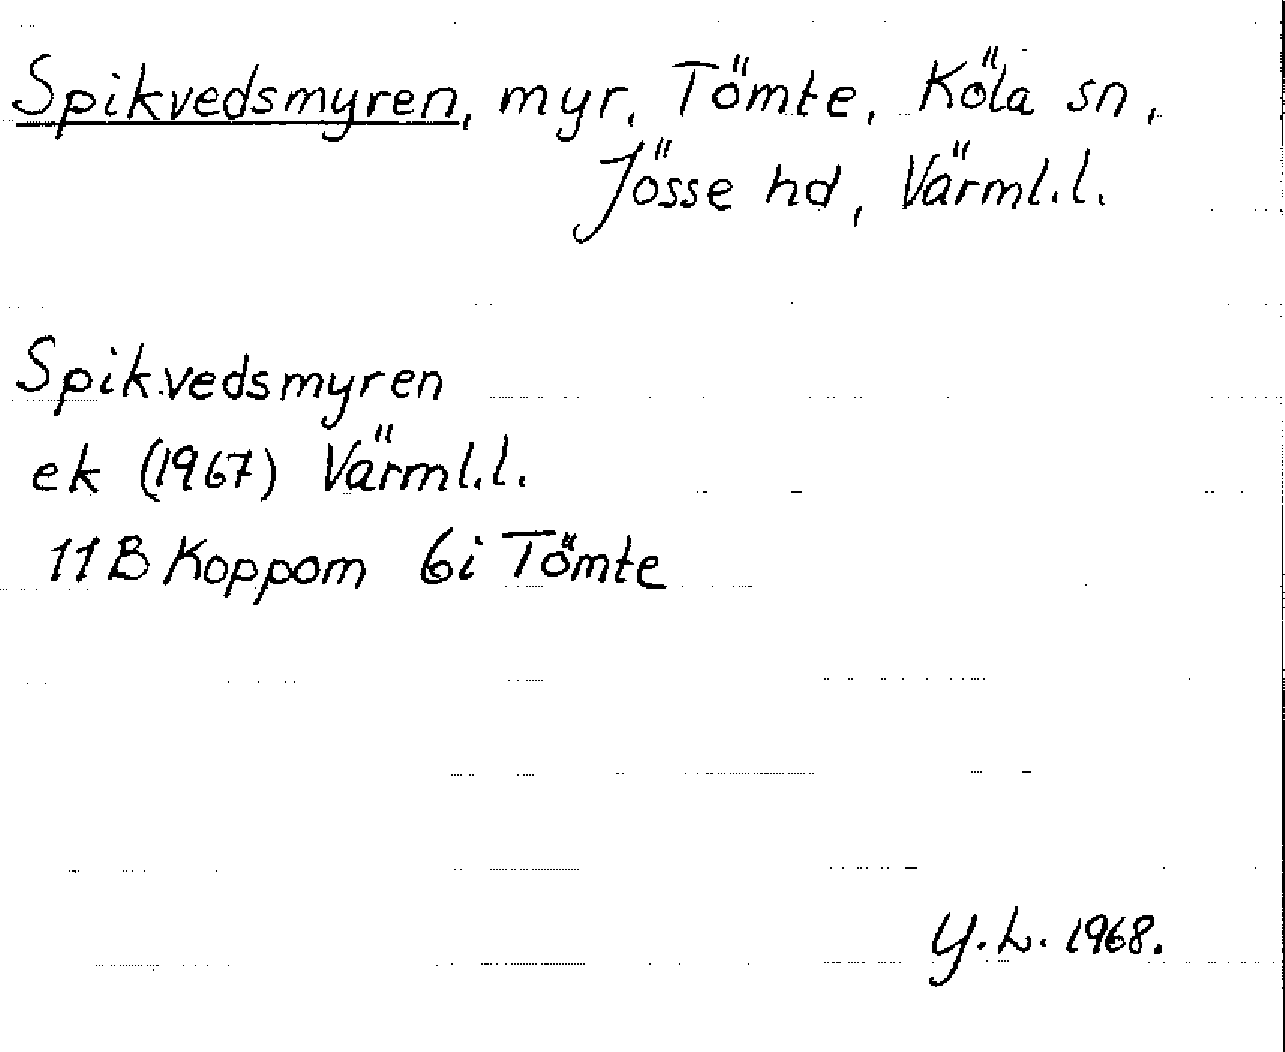 Spikvedsmyren, myr, Tömte, Köla sn,
Jösse hd, Värml.l.
Spikvedsmyren
ek (1967) Värml.l.
11B Koppom 6i Tömte
Y.L. 1968.